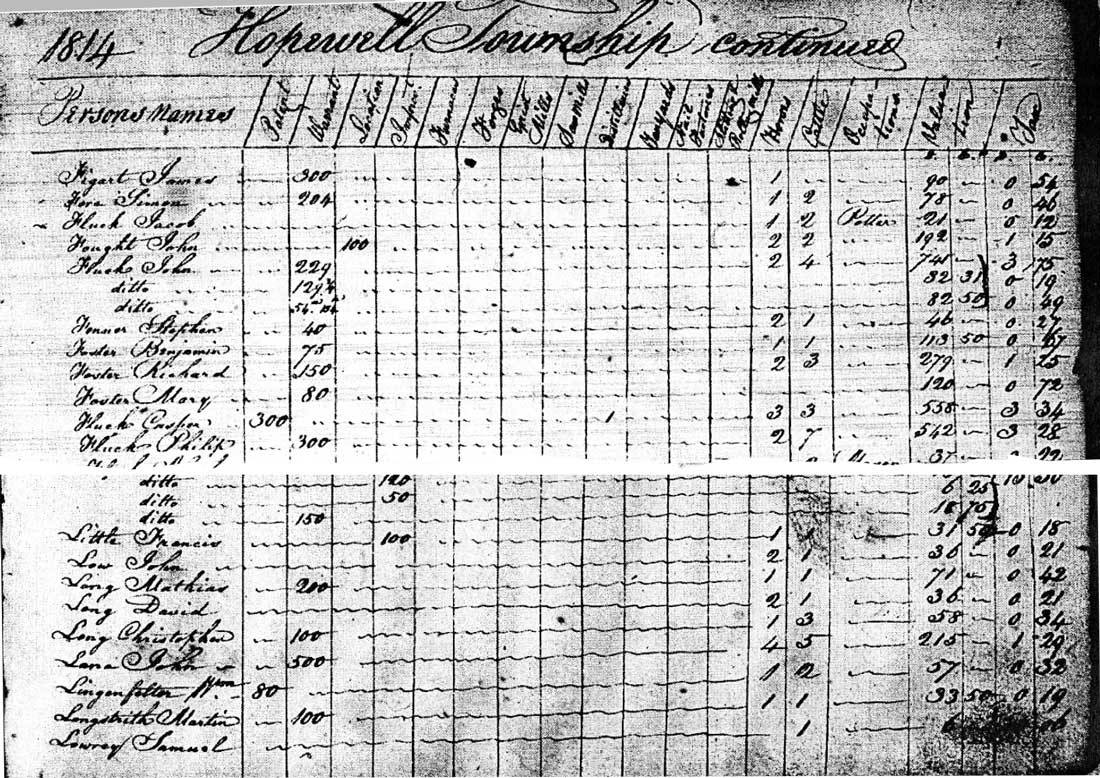 1814 Hopewell Township continued
Persons Names Patent Warrant Location Improt. Furnaces Forges Grist Mills Sawmills Distillaries Tanyards Horses Cattle Occupations Valuation Tax
Figart James 300 1 90 0 54
Fore Simon 204 1 2 78 0 46
Fluck Jacob 1 2 Potter 21 0 12
Fought John 100 2 2 192 1 15
Fluck John 229 2 4 741 3 75
ditto 129¼ 32 31 0 19
ditto 82 50 0 49
Fenner Stephen 40 2 1 46 0 27
Foster Benjamin 75 1 1 113 50 0 67
Foster Richard 150 2 3 279 1 25
Foster Mary 80 120 0 72
Fluck Casper 300 1 3 3 558 3 34
Fluck Philip 300 2 7 542 3 28
37
ditto 120
ditto 50 6 25
ditto 150 18 75
Little Francis 100 1 31 50 0 18
Low John 2 1 36 0 21
Long Mathias 200 1 1 71 0 42
Long David 2 1 36 0 21
Long Christopher 100 1 3 58 0 34
Lane John 500 4 5 215 1 29
Lingenfelter Wm 80 1 2 57 0 32
Longstrith Martin 100 1 1 33 50 0 19
Lowrey Samuel 1 6